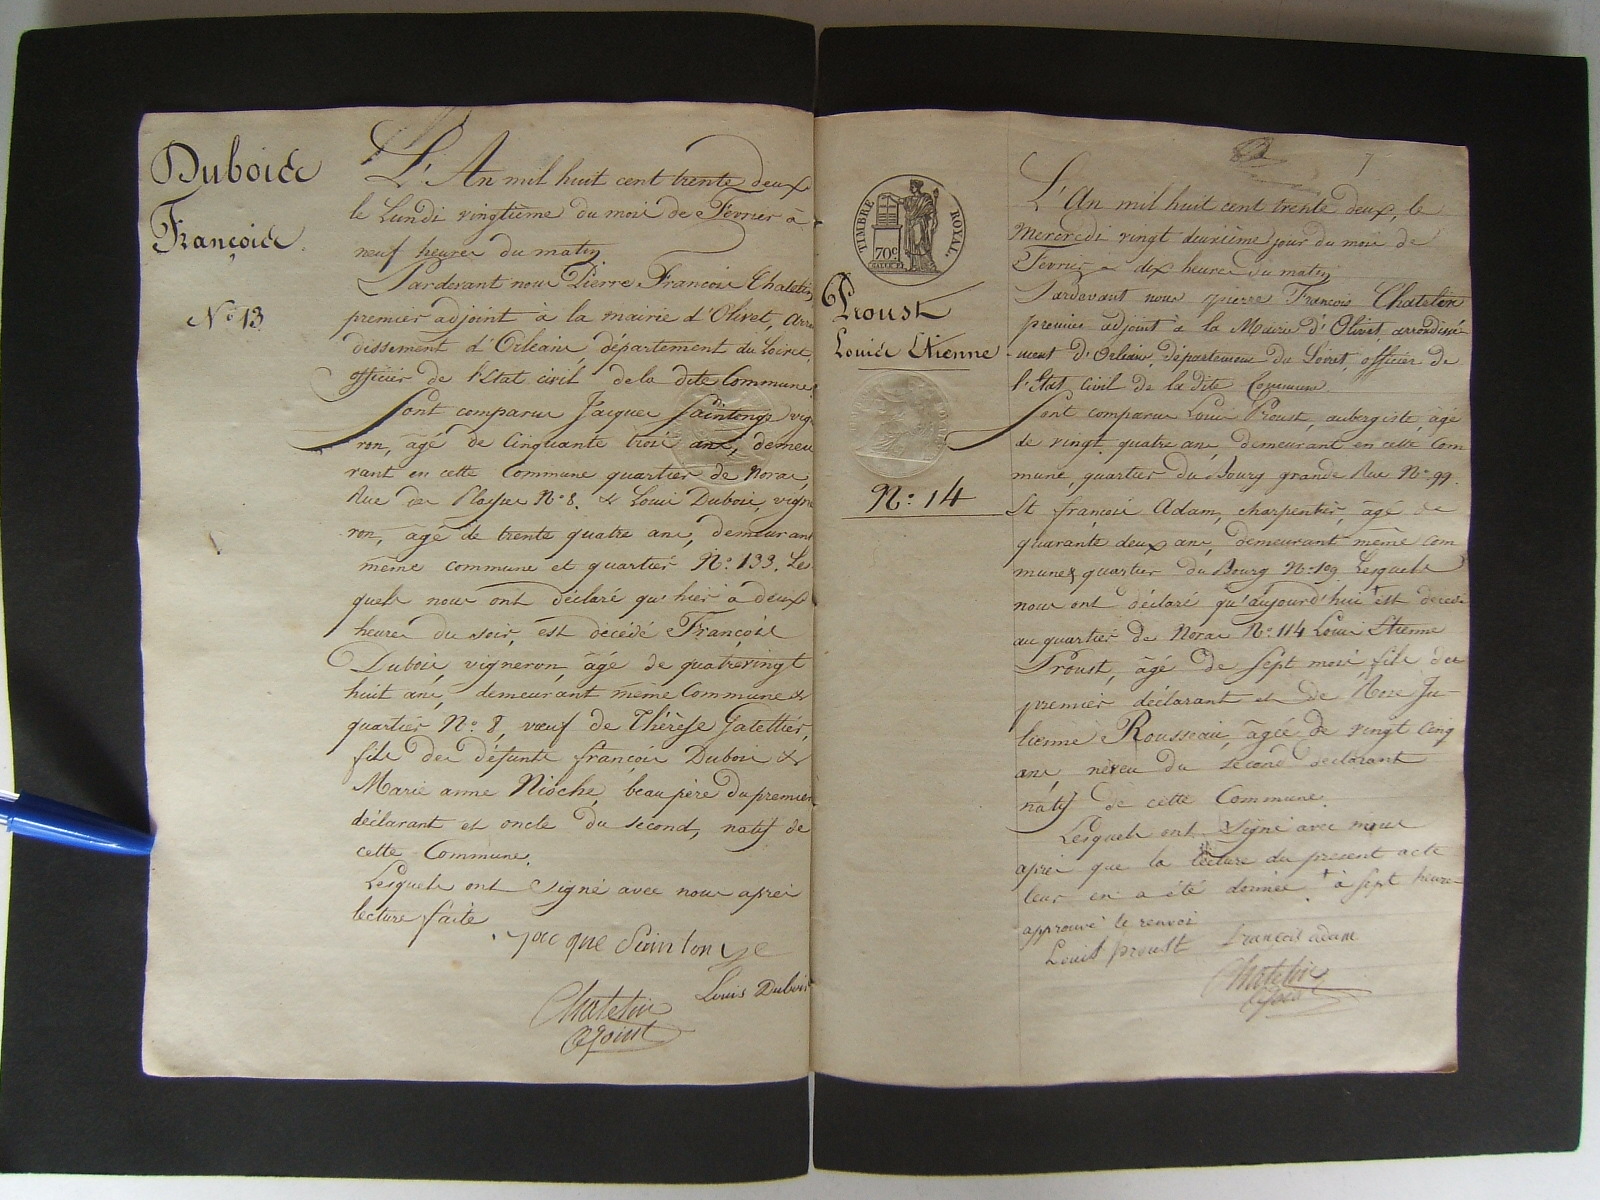 Dubois
François
N° 13
L'An mil huit cent trente deux
le Lundi vingtième du mois de Février à
neuf heures du matin
Pardevant nous Pierre François Chatelin,
premier adjoint à la mairie d'Olivet, arron
dissement d'Orléans, département du Loiret,
officier de l'Etat civil de la dite Commune,
Sont comparus Jacques Saintonge vigne
ron, âgé de Cinquante trois ans, demeu
rant en cette Commune quartier de Noras,
Rue de N° 8. & Louis Dubois, vigne
ron, âgé de trente quatre ans, demeurant
même commune et quartier N° 133. Les
quels nous ont déclaré qu'hier à deux
heures du soir, est décédé François
Dubois, vigneron, âgé de quatrevingt
huit ans, demeurant même Commune &
quartier N° 8, vœuf de Thérèse Gatellier,
fils des défunts françois Dubois &
Marie anne Nioche, beau père du premier
déclarant et oncle du second, natif de
cette Commune.
Lesquels ont Signé avec nous après
lecture faite
Jacque Saintonge
Louis Dubois
Chatelin
adjoint
7
TIMBRE ROYAL
70c
Proust
Louis Etienne
N° 14
L'An mil huit cent trente deux, le
Mercredi vingt deuxième jour du mois de
Février à dix heures du matin
Pardevant nous pierre François Chatelin
premier adjoint à la Mairie d'Olivet, arrondisse
ment d'Orléans, département du Loiret, officier de
l'Etat Civil de la dite Commune
Sont comparus Louis Proust, aubergiste, âgé
de vingt quatre ans, demeurant en cette Com
mune, quartier du Bourg grande Rue N° 99.
Et françois Adam, charpentier, âgé de
quarante deux ans, demeurant même Com
mune & quartier du Bourg N° 109 Lesquels
nous ont déclaré qu'aujourd'hui + est décédé
au quartier de Noras N° 114 Louis Etienne
Proust, âgé de Sept mois, fils du
premier déclarant et de Rose Ju-
lienne Rousseau, âgée de vingt cinq
ans, neveu du second déclarant
natif de cette Commune.
Lesquels ont Signé avec nous
après que la lecture du présent acte
leur en a été donnée + à Sept heures
approuvé le renvoi
Louis proust François adam
Chatelin
adjoint